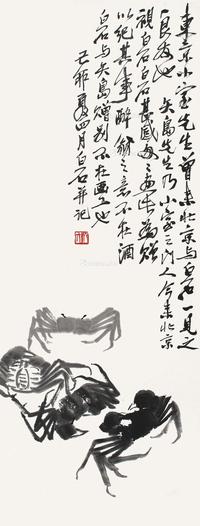 東京小室先生曾來北京与白石一見之
良友也 矢島先生乃小室之門人今来北京
視白石白石甚感
以纪其事醉翁之意不在酒
白石与矢島赠别不在画之也
己卯夏四月白石并记